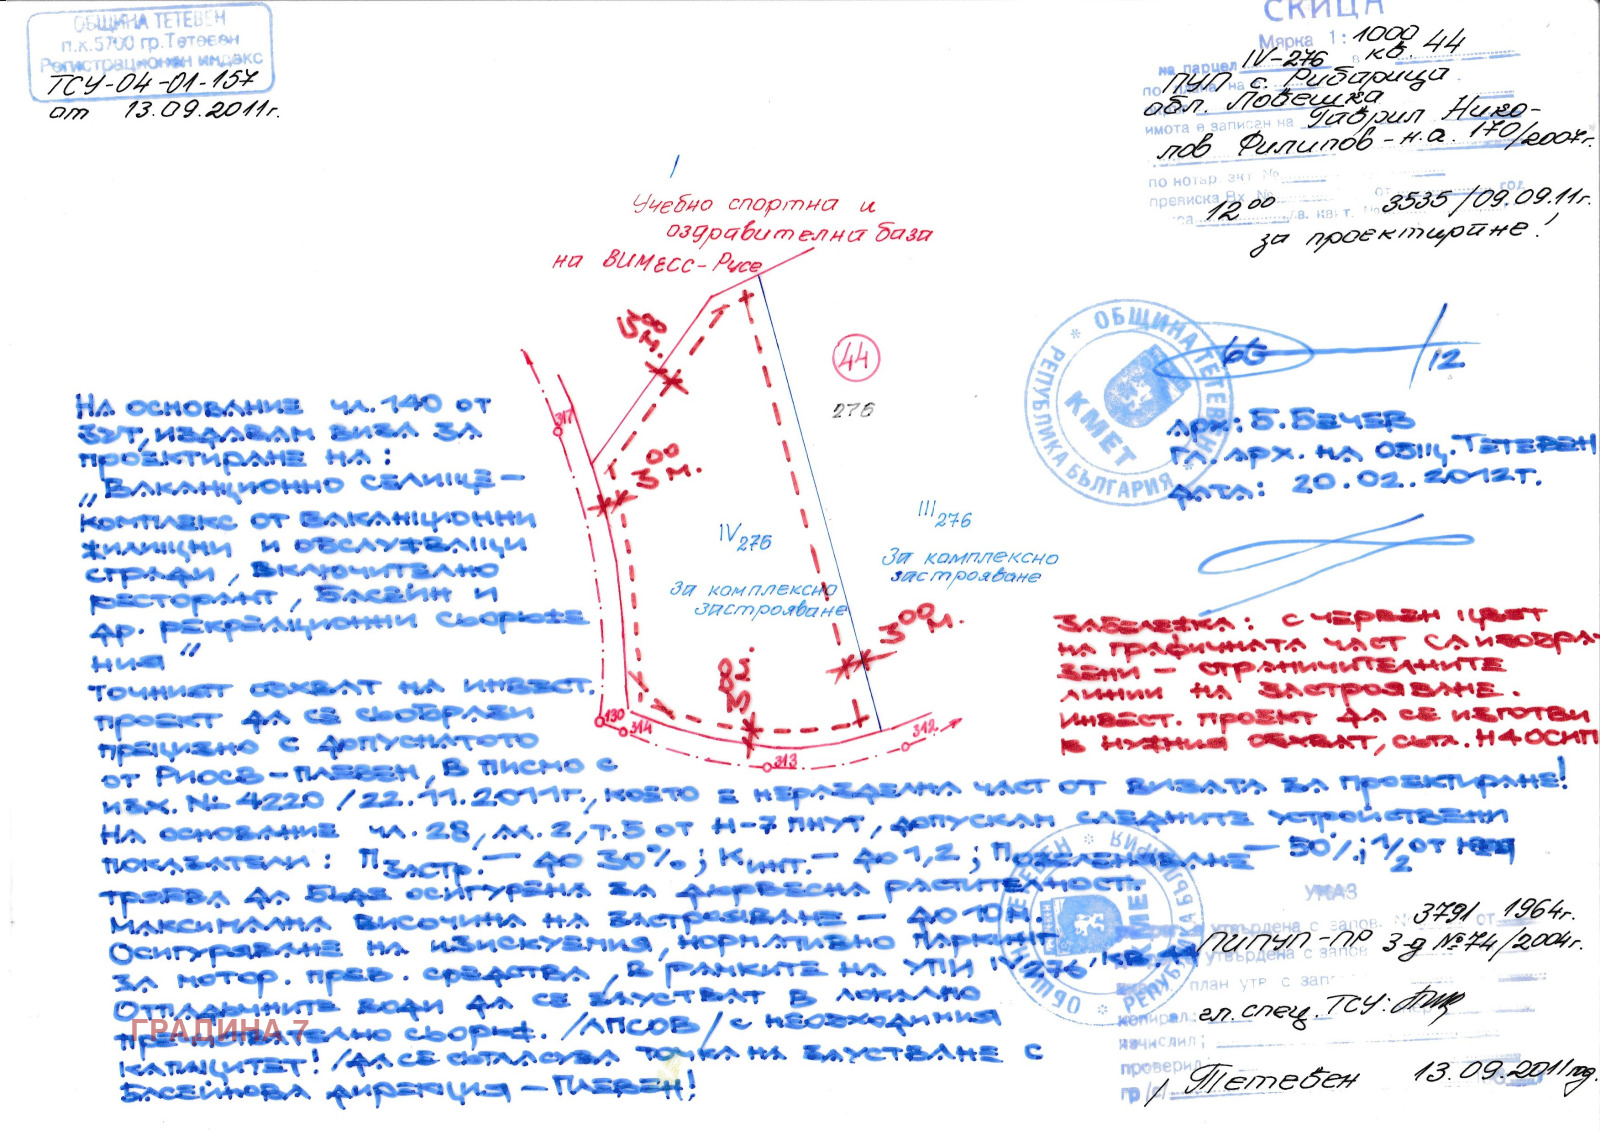 ОБЩИНА ТЕТЕВЕН
п.к.5700 гр.Тетевен
Регистрационен индекс
ТСУ-04-01-157
от 13.09.2011г.
СКИЦА
Мярка 1:1000
на парцел IV-276 в кв. 44
ПУП с. Рибарица
обл. Ловешка
имота е записан на Гаврил Нико-
лов Филипов - н.а. 170/2007г.
по нотар. акт №
преписка Вх. № от год
12⁰⁰ 3535/09.09.11г.
за проектиране!
Учебно спортна и
оздравителна база
на ВИМЕСС-Русе
5⁰⁰ м.
44
276
317
3⁰⁰ м.
IV 276
За комплексно
застрояване
III 276
За комплексно
застрояване
3⁰⁰ м.
130
314
313
312
ОБЩИНА ТЕТЕВЕН
РЕПУБЛИКА БЪЛГАРИЯ
КМЕТ
/12
арх: Б. Бечев
гл. арх. на общ. Тетевен
дата: 20.02.2012г.
На основание чл. 140 от
ЗУТ, издавам виза за
проектиране на:
„Ваканционно селище –
комплекс от ваканционни
жилищни и обслужващи
сгради, включително
ресторант, басейн и
др. рекреационни съоръже
ния"
Точният обхват на инвест.
проект да се съобрази
прецизно с допуснатото
от Риосв-Плевен, в писмо с
изх. № 4220/22.11.2011г., което е неразделна част от визата за проектиране!
На основание чл. 28, ал. 2, т. 5 от Н-7 ПНУТ, допускам следните устройствени
показатели: Пзастр. – до 30%; Кинт. – до 1,2; Позеленяване – 50%; 1/2 от
трябва да бъде осигурена за дървесна растителност.
Максимална височина на застрояване – до 10 м.
Осигуряване на изискуемия, нормативно паркинг
за мотор. прев. средства, в рамките на УПИ IV 276, кв. 44
Отпадъчните води да се заустват в локално
пречиствателно съоръж. /ЛПСОВ/ с необходимия
капацитет! /Да се съгласува точка на заустване с
Басейнова дирекция – Плевен!
ГРАДИНА 7
Забележка: с червен цвет
на графичната част са изобра-
зени – ограничителните
линии на застрояване.
Инвест. проект да се изготви
в нужния обхват, съгл. Н4ОСИП
ОБЩИНА ТЕТЕВЕН
РЕПУБЛИКА БЪЛГАРИЯ
КМЕТ
УКАЗ
утвърдена с запов. № 3791 от 1964г.
ПИПУП-ПР З-д №74/2004г.
утвърдена с запов
план утв с зап
копирал: гл. спец. ТСУ:
изчислил:
проверил:
гр./с/ Тетевен 13.09.2011год.